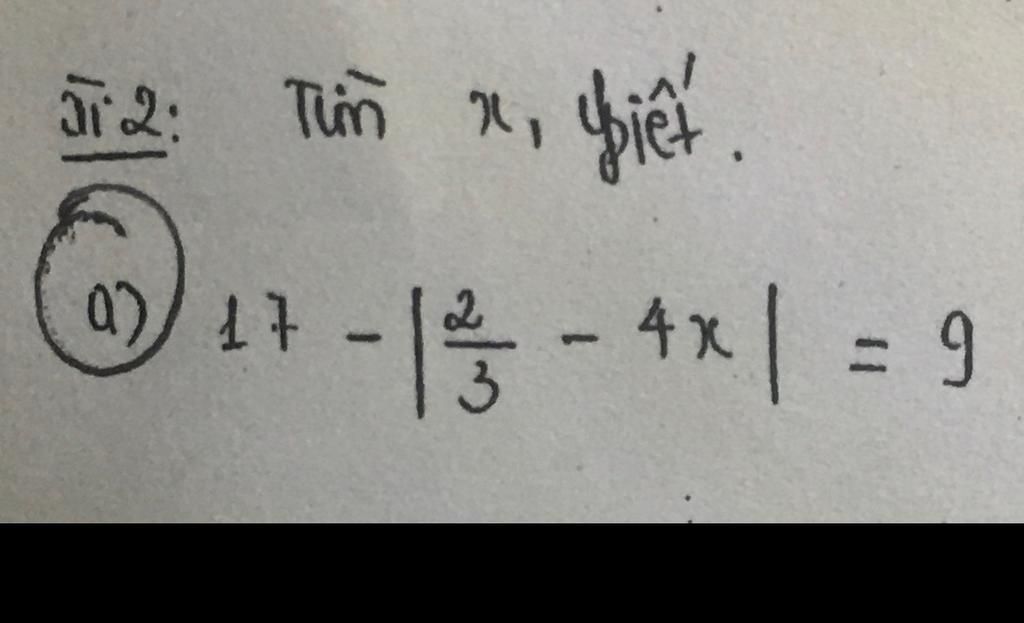 Bài 2: Tìm x, biết.
a) 17 - | 2/3 - 4x | = 9